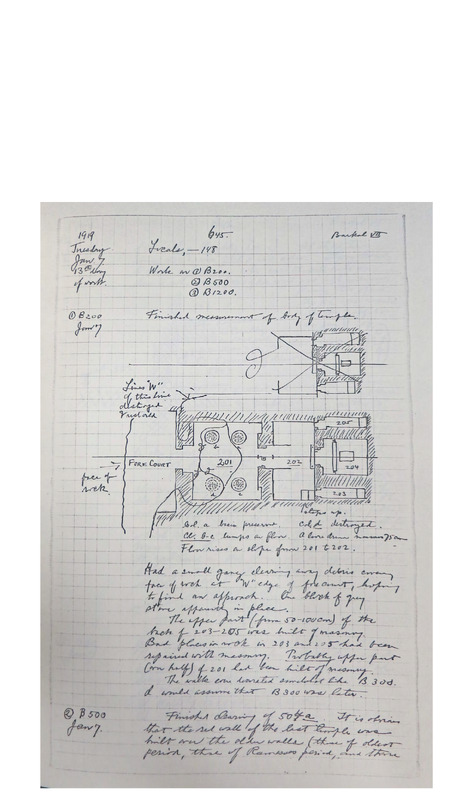 1919
645.
Barkal VII
Tuesday
Jan 7
13th day
of work.
Locals, — 148
Work on ① B200.
② B500
③ B1200.
① B200
Jan 7
Finished measurement of body of temple.
Lines "W"
of this line
destroyed
205
FORE COURT
201
202
204
203
face of
rock
steps up.
destroyed.
Floor rises in slope from 201 to 202.
Had a small gang clearing away debris
face of rock at "W" edge of forecourt, hoping
to find an approach. One block of grey
stone apparently in place.
The upper part (from 50-100cm) of the
back of 203-205 was built of masonry.
Bad places in rock in 203 and 205 had been
repaired with masonry. Probably upper part
(on half) of 201 had been built of masonry.
The walls are decorated somewhat like B300.
I would assume that B300 was later.
② B500
Jan 7.
Finished clearing of 504a. It is obvious
that the wall of the last temple was
built over the older walls (those of oldest
period, those of Ramesses period, and those